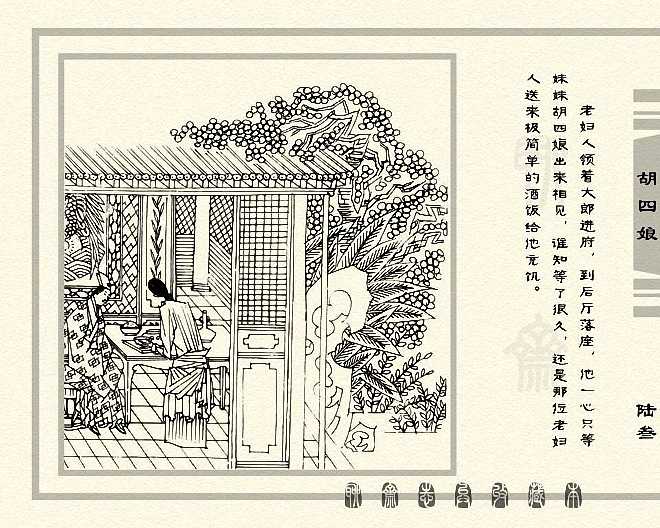 老妇人领着大郎进府，到后厅落座，他一心只等
妹妹胡四娘出来相见，谁知等了很久，还是那位老妇
人送来极简单的酒饭给他充饥。
胡四娘
陆叁